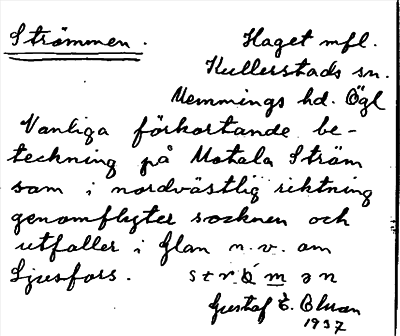 Strömmen.
Haget mfl.
Kullerstads sn.
Memmings hd. Ögl
Vanliga förkortande be-
teckning på Motala Ström
som i nordvästlig riktning
genomflyter socknen och
utfaller i Glan n.v. om
Ljusfors.
Gustaf E.
1937